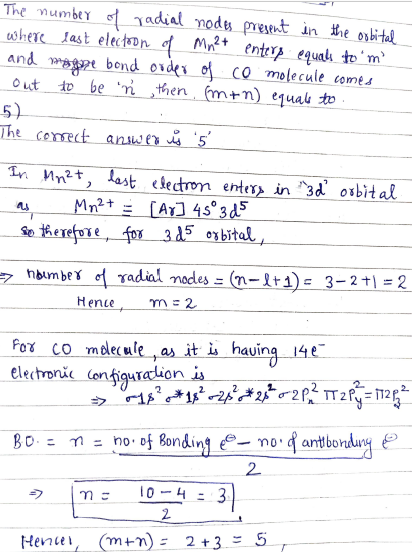 The number of radial nodes present in the orbital
where last electron of Mn²⁺ enters equals to 'm'
and bond order of CO molecule comes
out to be 'n', then (m+n) equals to.
5)
The correct answer is '5'
In Mn²⁺, last electron enters in '3d' orbital
as, Mn²⁺ ≡ [Ar] 4s⁰ 3d⁵
therefore, for 3d⁵ orbital,
⇒ number of radial nodes = (n-l+1) = 3-2+1 = 2
Hence, m = 2
For CO molecule, as it is having 14e⁻
electronic configuration is
⇒ σ1s² σ*1s² σ2s² σ*2s² σ2Pₓ² π2Py² = π2Pz²
B.O. = n = no. of Bonding e⊖ - no. of antibonding e⊖
2
⇒ n = 10-4 = 3
2
Hence, (m+n) = 2+3 = 5,